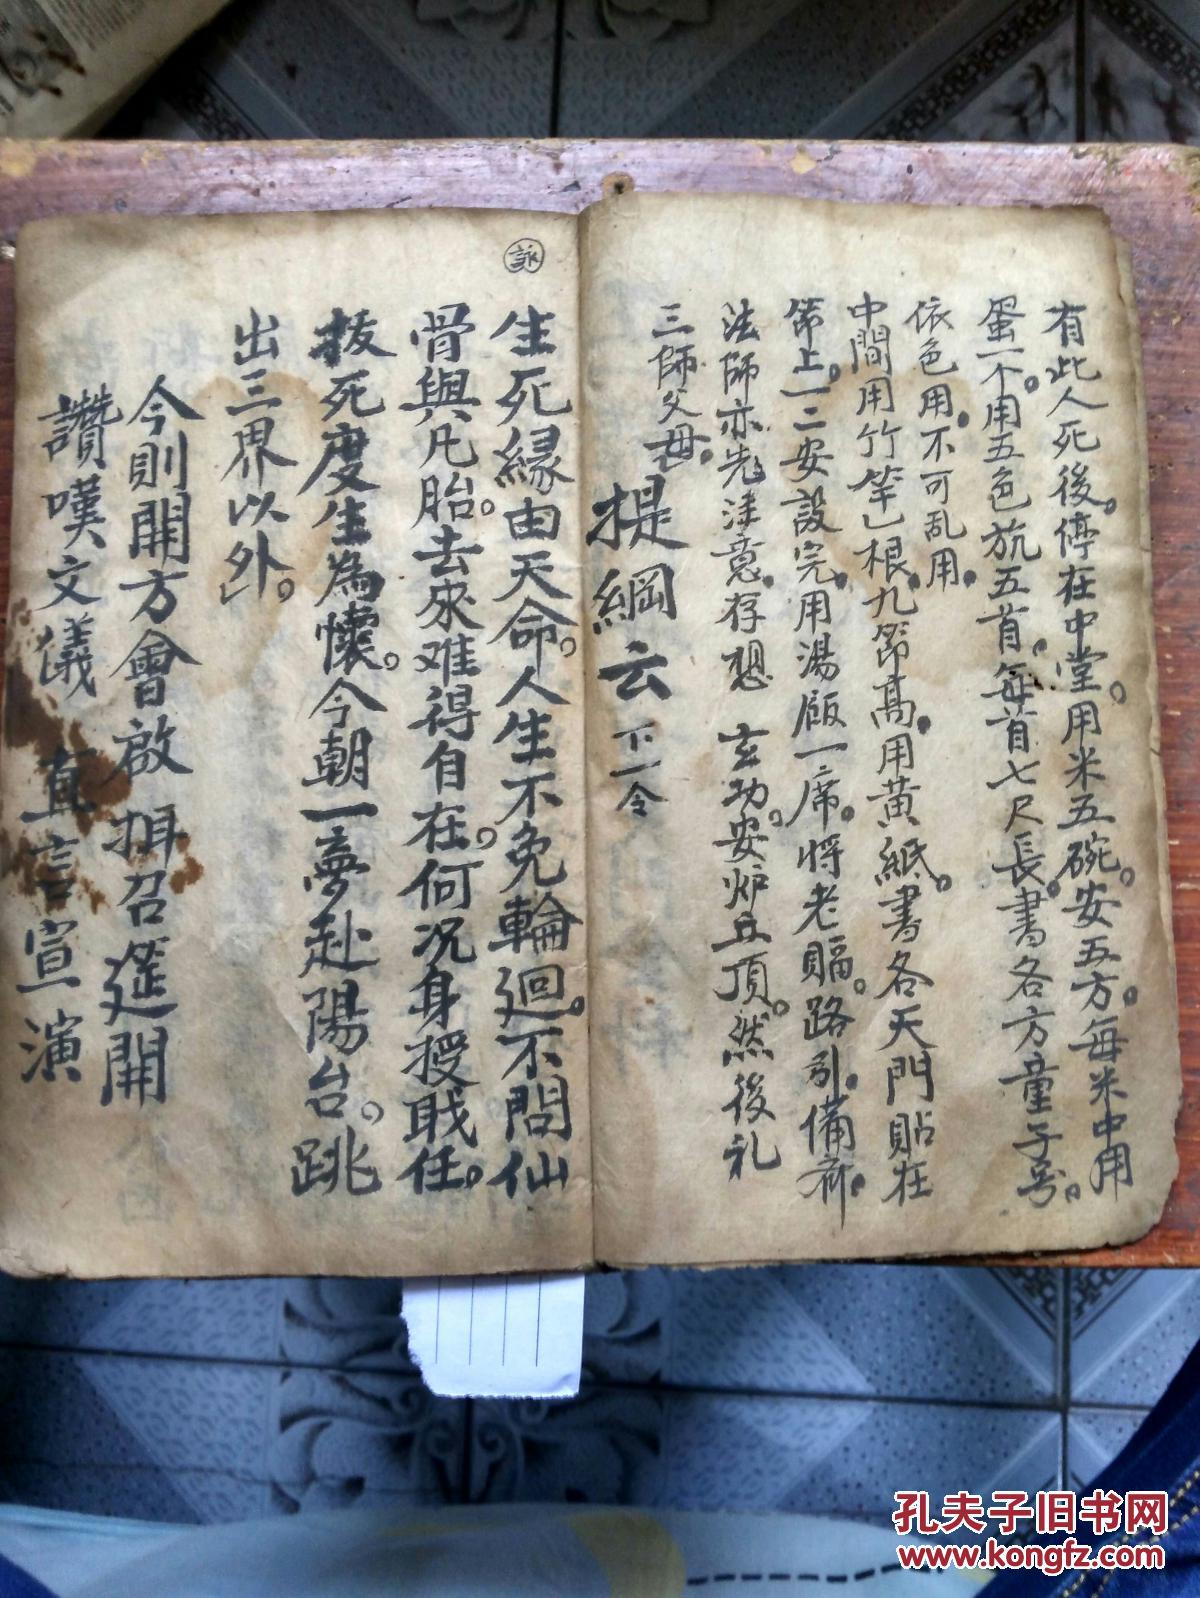 有此人死後。停在中堂。用米五碗。安五方。每米中用
蛋一个。用五色旂五首。每首七尺長。書各方童子号。
依色用。不可乱用。
中間用竹竿乚根。九節高。用黄紙。書各天門貼在
節上。一二安設完。用湯飯一席。將老賜。路引。備齐。
法師亦先注意。存想 玄功。安炉丘頂。然後礼
三師父母。
提綱云 下一令
詠
生死縁由天命。人生不免輪迴。不問仙
骨與凡胎。去來难得自在。何况身授戝任。
拔死度生為懷。今朝一夢赴陽台。跳
出三界以外。
今則開方會啟 揖召筵開
讚嘆文儀 直言宣演
孔夫子旧书网
www.kongfz.com